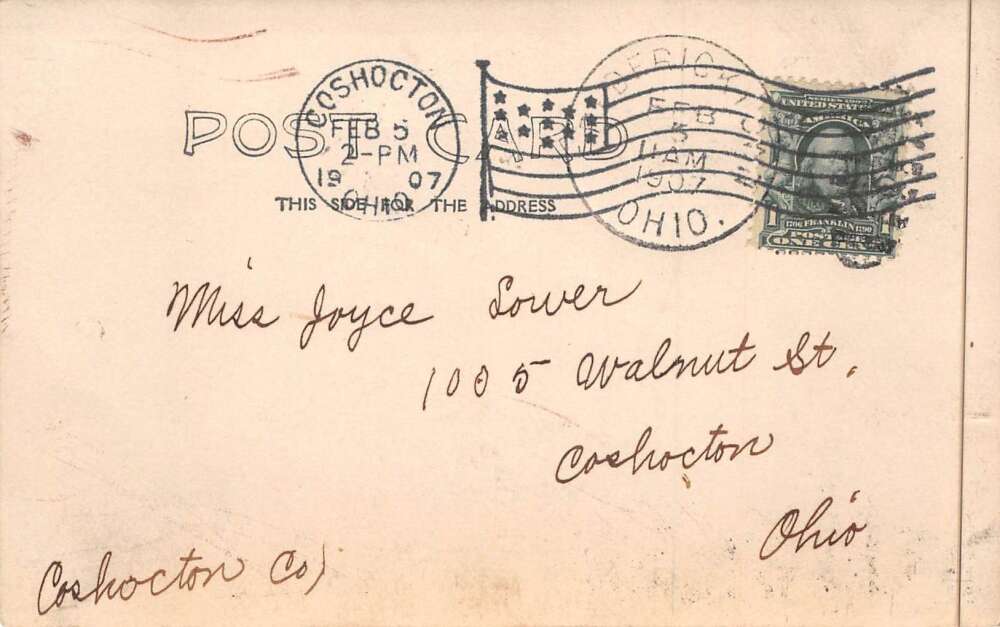 COSHOCTON
FEB 5
2-PM
19 07
OHIO
FEB
5
11 AM
1907
OHIO.
SERIES 1902
UNITED STATES
AMERICA
1706 FRANKLIN 1790
1 POSTAGE 1
ONE CENT
POST CARD
THIS SIDE FOR THE ADDRESS
Miss Joyce Lower
1005 Walnut St.
Coshocton
Ohio
Coshocton Co)